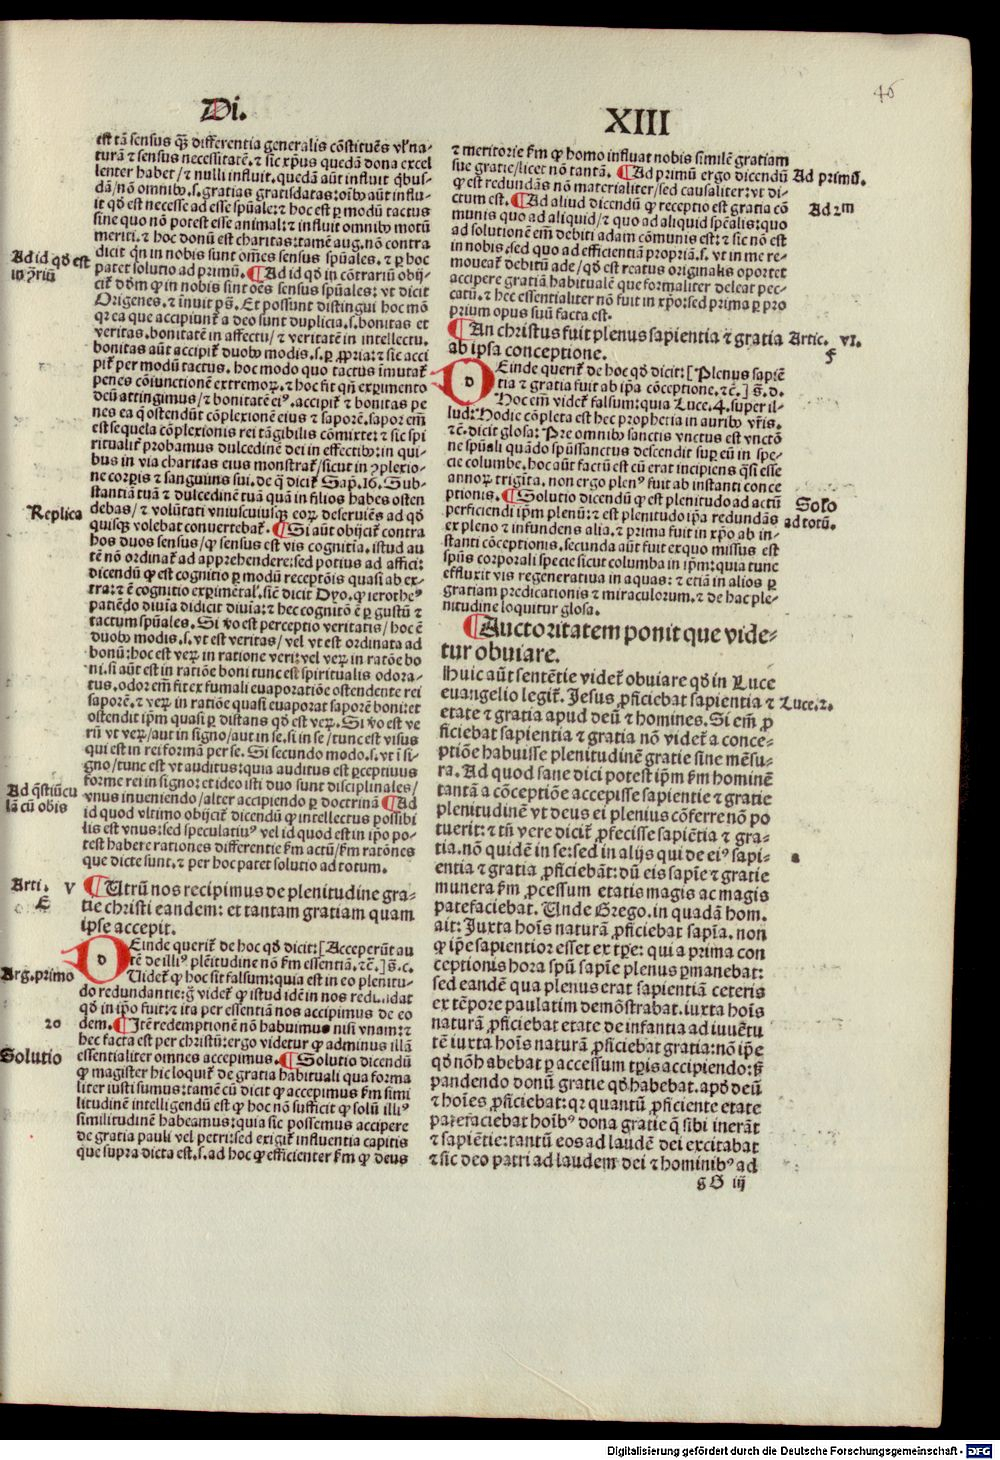 46
Di.
XIII
est tā sensus qȝ differentia generalis cōstituēs vl' na-
turā ⁊ sensus necessitatē. ⁊ sic xp̄us quedā dona excel
lenter habet / ⁊ nulli influit. quedā aūt influit q̇bus-
dā / nō omnibꝰ. s. gratias gratisdatas: oībꝰ aūt influ-
it qd̄ est necesse ad esse spūale: ⁊ hoc est ꝑ modū tactus
sine quo nō potest esse animal: ⁊ influit omnibꝰ motū
meriti. ⁊ hoc donū est charitas: tamē aug. nō contra
dicit qn̄ in nobis sunt om̄es sensus spūales. ⁊ ꝑ hoc
Ad id qd̄ est
in ↄ̄riū
patet solutio ad primū. ¶ Ad id qd̄ in cōtrariū obij-
cit̄ dōm ꝙ in nobis sint oēs sensus spūales: vt dicit
Origenes. ⁊ īnuit pꝰ. Et possunt distingui hoc mō
qr ea que accipiunt̄ a deo sunt duplicia. s. bonitas et
veritas. bonitatē in affectu / ⁊ veritatē in intellectu.
bonitas aūt accipit̄ duobꝰ modis. s. ꝑ ꝓpria: ⁊ sic acci
pit̄ per modū tactus. hoc modo quo tactus īmutat̄
penes cōiunctionē extremoꝝ. ⁊ hoc fit qn̄ exꝑimento
deū attingimus / ⁊ bonitatē eiꝰ. accipit̄ ⁊ bonitas pe
nes ea q̄ ostendūt cōplexionē eius ⁊ saporē. sapor em̄
est sequela cōplexionis rei tāgibilis cōmixte: ⁊ sic spi
ritualit̄ probamus dulcedinē dei in effectibꝰ: in qui-
bus in via charitas eius monstrat̄ / sicut in ↄplexio-
ne corꝑis ⁊ sanguinis sui. de q̄ dicit̄ Sap̄. 16. Sub-
stantiā tuā ⁊ dulcedinē tuā quā in filios habes osten
debas / ⁊ volūtati vniuscuiusqȝ eoꝝ deseruiēs ad qd̄
Replica
quisqȝ volebat conuertebat̄. ¶ Si aūt obijcit̄ contra
hos duos sensus / ꝙ sensus est vis cognitia. istud au
tē nō ordinat̄ ad apprehendere: sed potius ad affici:
dicendū ꝙ est cognitio ꝑ modū receptōis quasi ab ex-
tra: ⁊ ē cognitio exꝑimētal'. sicē dicit Dyo. ꝙ ierotheꝰ
patiēdo diuīa didicit diuīa: ⁊ hec cognitō ē ꝑ gustū ⁊
tactum spūales. Si v̊o est perceptio veritatis / hoc ē
duobꝰ modis. s. vt est veritas / vel vt est ordinata ad
bonū: hoc est veꝝ in ratione veri: vel veꝝ in ratōe bo
ni. si aūt est in ratiōe boni tunc est spiritualis odora-
tus. odor em̄ fit ex fumali euaporatiōe ostendente rei
saporē. ⁊ veꝝ in ratiōe quasi euaporat saporē boni: et
ostendit ip̄m quasi ꝑ distans qd̄ est veꝝ. Si v̊o est ve
rū vt veꝝ / aut in signo / aut in se. si in se / tunc est visus
qui est in rei formā per se. Si secundo modo. s. vt ī si-
gno / tunc est vt auditus: quia auditus est ꝑceptiuus
Ad q̄stiūcu
lā cū obis
forme rei in signo: et ideo isti duo sunt disciplinales /
vnus inueniendo / alter accipiendo ꝑ doctrinā ¶ Ad
id quod vltimo obijcit̄ dicendū ꝙ intellectus possibi
lis est vnus: sed speculatiuꝰ vel id quod est in ip̄o po-
test habere rationes differentie s̄m actū / s̄m ratōnes
que dicte sunt. ⁊ per hoc patet solutio ad totum.
Arti. V
E
¶ Utrū nos recipimus de plenitudine gra-
tie christi eandem: et tantam gratiam quam
ipse accepit.
DEinde querit̄ de hoc qd̄ dicit: [Acceperūt au
tē de illiꝰ plētitudine nō s̄m essentiā. ⁊c̄.] s̄. c.
Arg. primo
Uidet̄ ꝙ hoc sit falsum: quia est in eo plenitu-
do redundantie: g̊ videt̄ ꝙ istud idē in nos redundat
qd̄ in ip̄o fuit: ⁊ ita per essentiā nos accipimus de eo
20
dem. ¶ Itē redemptionē nō habuimus nisi vnam: ⁊
hec facta est per christū: ergo videtur ꝙ adminus illā
Solutio
essentialiter omnes accepimus. ¶ Solutio dicendū
ꝙ magister hic loquit̄ de gratia habituali qua forma
liter iusti sumus: tamē cū dicit ꝙ accepimus s̄m simi
litudinē intelligendū est ꝙ hoc nō sufficit ꝙ solū illiꝰ
similitudinē habeamus: quia sic possemus accipere
de gratia pauli vel petri: sed exigit̄ influentia capitis
que supra dicta est. s. ad hoc ꝙ efficienter s̄m ꝙ deus
⁊ meritorie s̄m ꝙ homo influat nobis similē gratiam
sue gratie / licet nō tantā. ¶ Ad primū ergo dicendū
Ad primū.
ꝙ est redundās nō materialiter / sed causaliter: vt di-
ctum est. ¶ Ad aliud dicendū ꝙ receptio est gratia cō
Ad 2m
munis quo ad aliquid / ⁊ quo ad aliquid spēalis: quo
ad solutionē em̄ debiti adam cōmunis est: ⁊ sic nō est
in nobis. sed quo ad efficientiā propriā. s. vt in me re-
moueat̄ debitū ade / qd̄ est reatus originalis oportet
accipere gratiā habitualē que formaliter deleat pec-
catū. ⁊ hec essentialiter nō fuit in xp̄o: sed prima ꝑ pro
prium opus suū facta est.
¶ An christus fuit plenus sapientia ⁊ gratia
Artic. VI.
F
ab ipsa conceptione.
DEinde querit̄ de hoc qd̄ dicit: [Plenus sapiē
tia ⁊ gratia fuit ab ip̄a cōceptione. ⁊c̄.] s̄. d.
Hoc em̄ videt̄ falsum: quia Luce. 4. super il-
lud: Hodie cōpleta est hec prophetia in auribꝰ vr̄is.
⁊c̄. dicit glosa: Pre omnibꝰ sanctis vnctus est vnctō
ne spūali quādo spūssanctus descendit suꝑ eū in spe-
cie columbe. hoc aūt factū est cū erat incipiens q̄si esse
annoꝝ trigīta. non ergo plenꝰ fuit ab instanti conce
ptionis. ¶ Solutio dicendū ꝙ est plenitudo ad actū
Solo
ad totū.
perficiendi ip̄m plenū: ⁊ est plenitudo ip̄a redundās
ex pleno ⁊ infundens alia. ⁊ prima fuit in xp̄o ab in-
stanti cōceptionis. secunda aūt fuit exquo missus est
spūs corporali specie sicut columba in ip̄m: quia tunc
effluxit vis regeneratiua in aquas: ⁊ etiā in alios ꝑ
gratiam predicationis ⁊ miraculorum. ⁊ de hac ple-
nitudine loquitur glosa.
¶ Auctoritatem ponit que vide-
tur obuiare.
Huic aūt sentētie videt̄ obuiare qd̄ in Luce
euangelio legit̄. Jesus ꝓficiebat sapientia ⁊
Luce. 2.
etate ⁊ gratia apud deū ⁊ homines. Si em̄ ꝓ
ficiebat sapientia ⁊ gratia nō videt̄ a conce-
ptiōe habuisse plenitudinē gratie sine mēsu-
ra. Ad quod sane dici potest ip̄m s̄m hominē
tantā a cōceptiōe accepisse sapientie ⁊ gratie
plenitudinē vt deus ei plenius cōferre nō po
tuerit: ⁊ tn̄ vere dicit̄ ꝓfecisse sapiētia ⁊ gra-
tia. nō quidē in se: sed in alijs qui de eiꝰ sapi-
entia ⁊ gratia ꝓficiebāt: dū eis sapiē ⁊ gratie
munera s̄m ꝓcessum etatis magis ac magis
patefaciebat. Unde Grego. in quadā hom.
ait: Juxta hoīs naturā ꝓficiebat sapīa. non
ꝙ ip̄e sapientior esset ex tp̄e: qui a prima con
ceptionis hora spū sapīe plenus ꝑmanebat:
sed eandē qua plenus erat sapientiā ceteris
ex tēpore paulatim demōstrabat. iuxta hoīs
naturā ꝓficiebat etate de infantia ad iuuētu
tē iuxta hoīs naturā ꝓficiebat gratia: nō ip̄e
qd̄ nō habebat ꝑ accessum tp̄is accipiendo: s̄ȝ
pandendo donū gratie qd̄ habebat. apd̄ deū
⁊ hoīes ꝓficiebat: qr quantū ꝓficiente etate
patefaciebat hoībꝰ dona gratie q̄ sibi inerāt
⁊ sapiētie: tantū eos ad laudē dei excitabat
⁊ sic deo patri ad laudem dei ⁊ hominibꝰ ad
gG iij
Digitalisierung gefördert durch die Deutsche Forschungsgemeinschaft - DFG